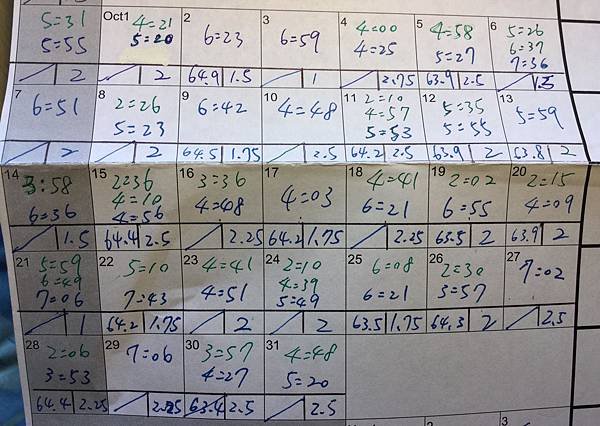 5=31
5=55
2
Oct1 4=21
5=20
2
2
6=23
64.9 1.5
3
6=59
1
4
4=00
4=25
2.75
5
4=58
5=27
63.9 2.5
6
5=26
6=37
7=36
1.5
7
6=51
2
8
2=26
5=23
2
9
6=42
64.5 1.75
10
4=48
2.5
11 2=10
4=57
5=53
64.2 2.5
12
5=35
5=55
63.9 2
13
5=59
63.8 2
14
3:58
6=36
1.5
15
2=36
4=10
4=56
64.4 2.5
16
3=36
4=08
2.25
17
4=03
64.2 1.75
18
4=41
6=21
2.25
19
2=02
6=55
63.5 2
20
2=15
4=09
63.9 2
21
5=59
6=49
7=06
1
22
5=10
7=43
64.2 1.75
23
4=41
4=51
2
24
2=10
4=39
5=49
2
25
6=08
6=21
63.5 1.75
26
2=30
3=57
64.3 2
27
7=02
2.5
28
2=06
3=53
64.4 2.25
29
7=06
2.25
30
3=57
4=27
63.4 2.5
31
4=48
5=20
2.5
3